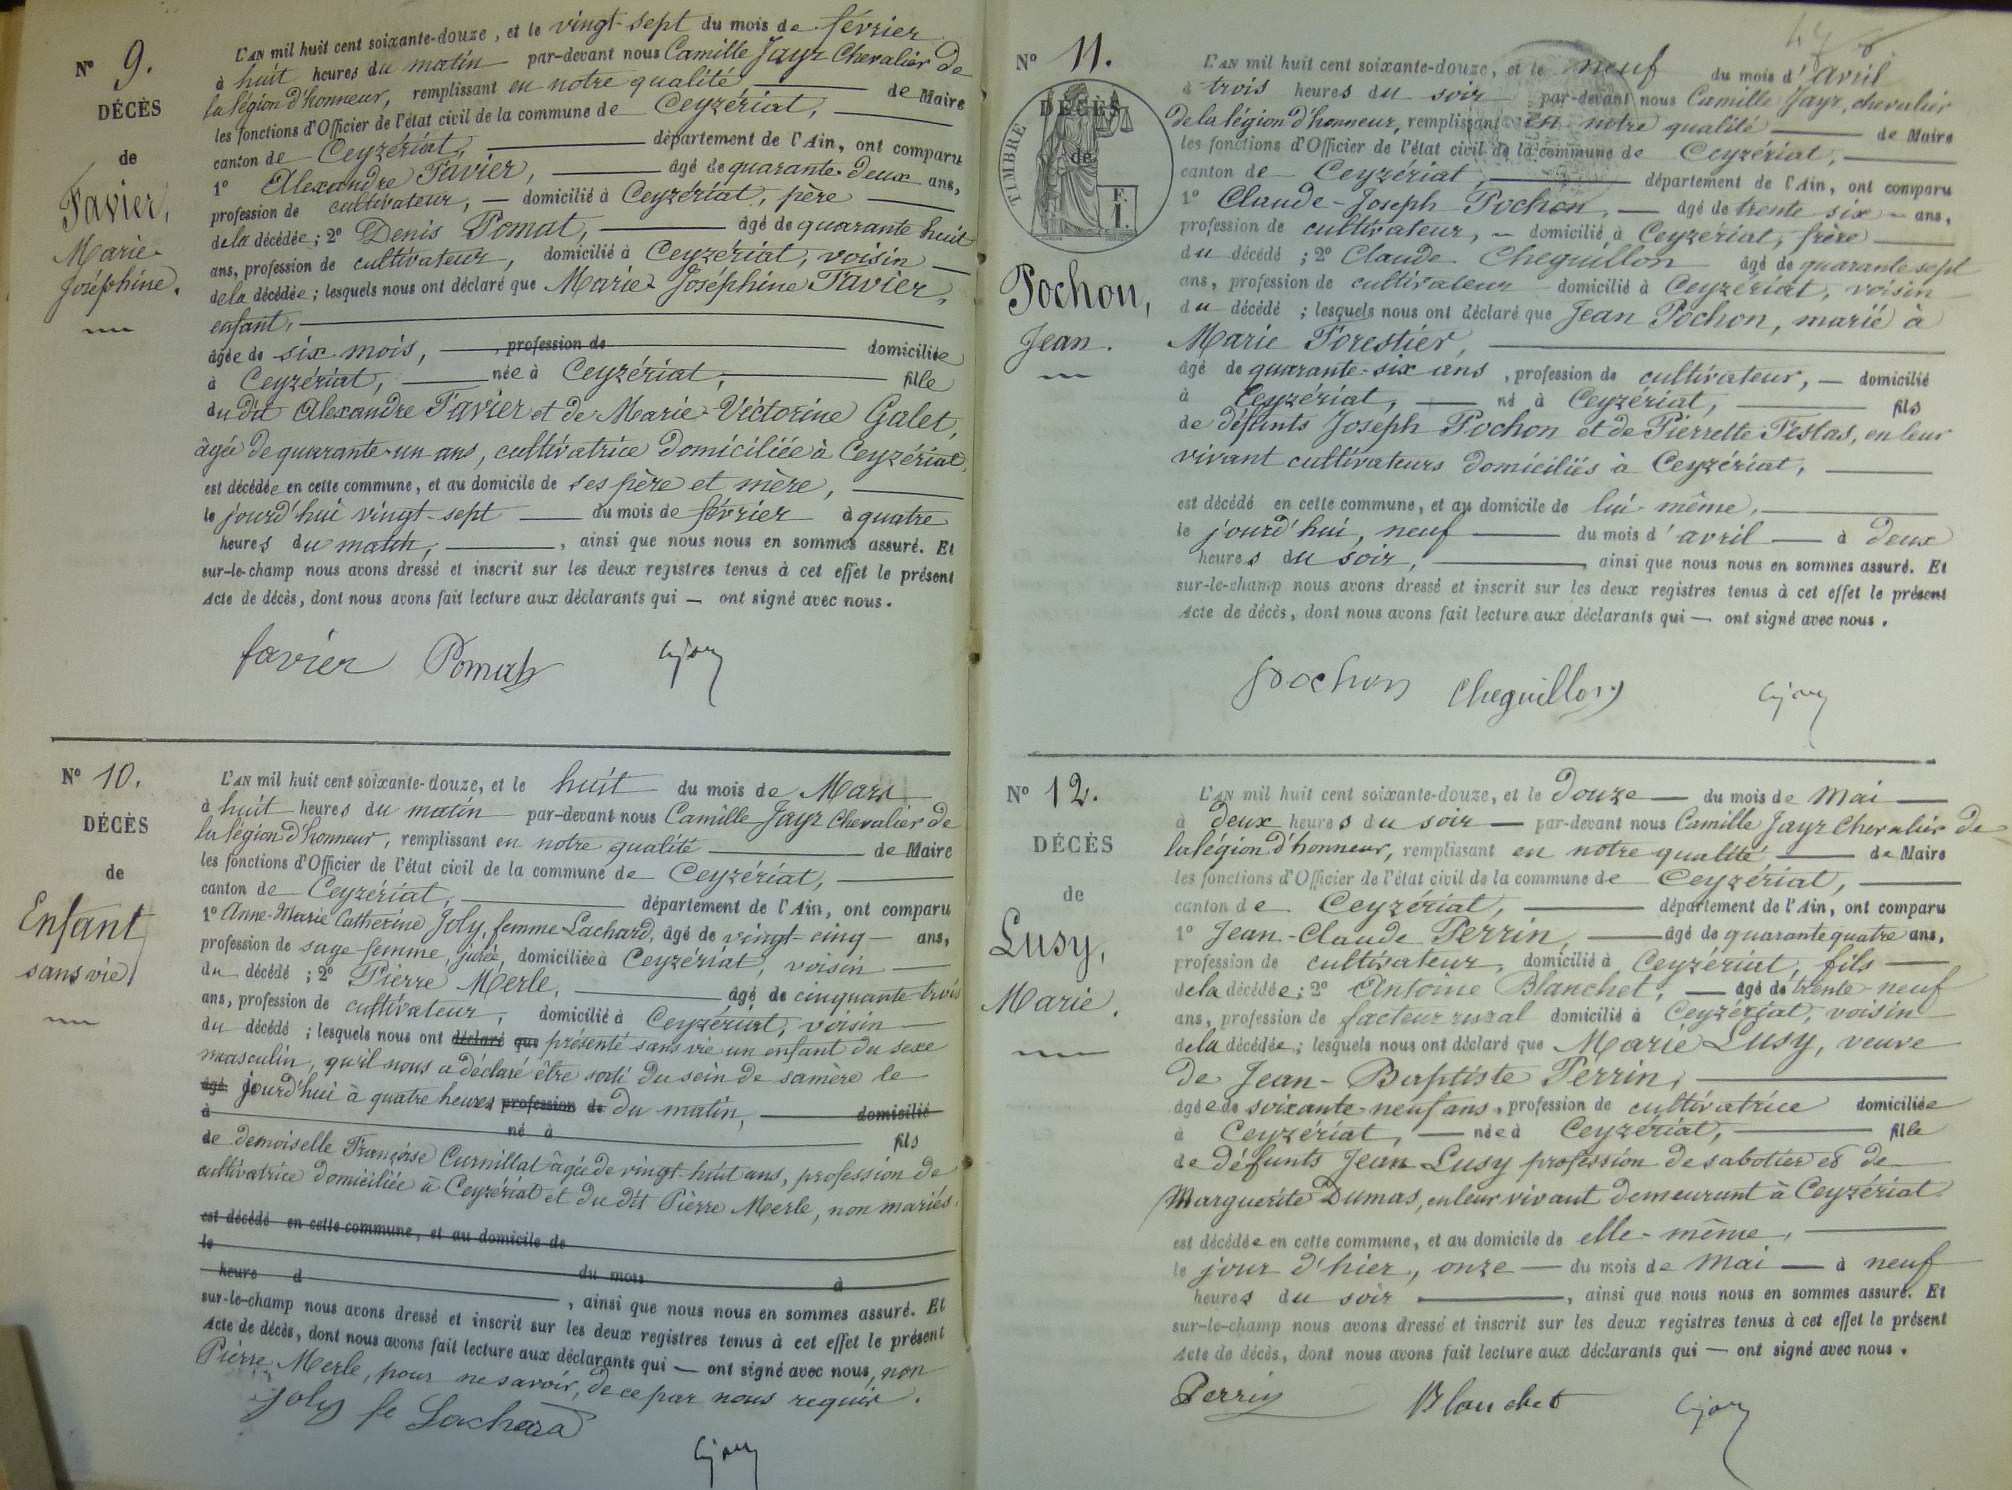 N° 9.
DÉCÈS
de
Favier,
Marie-
Joséphine.
L'AN mil huit cent soixante-douze, et le vingt-sept du mois de février
à huit heures du matin par-devant nous Camille Jayr Chevalier de
la légion d'honneur, remplissant en notre qualité de Maire
les fonctions d'Officier de l'état civil de la commune de Ceyzériat,
canton de Ceyzériat, département de l'Ain, ont comparu
1° Alexandre Favier, âgé de quarante-deux ans,
profession de cultivateur, domicilié à Ceyzériat, père
de la décédée; 2° Denis Pomat, âgé de quarante huit
ans, profession de cultivateur, domicilié à Ceyzériat, voisin
de la décédée; lesquels nous ont déclaré que Marie-Joséphine Favier,
enfant,
âgée de six mois, profession de domiciliée
à Ceyzériat, née à Ceyzériat, fille
du dit Alexandre Favier et de Marie-Victorine Galet,
âgée de quarante-un ans, cultivatrice domiciliée à Ceyzériat,
est décédée en cette commune, et au domicile de ses père et mère,
le jourd'hui vingt-sept du mois de février à quatre
heures du matin, ainsi que nous nous en sommes assuré. Et
sur-le-champ nous avons dressé et inscrit sur les deux registres tenus à cet effet le présent
Acte de décès, dont nous avons fait lecture aux déclarants qui — ont signé avec nous.
favier Pomat
N° 10.
DÉCÈS
de
Enfant
sans vie.
L'AN mil huit cent soixante-douze, et le huit du mois de Mars
à huit heures du matin par-devant nous Camille Jayr Chevalier de
la légion d'honneur, remplissant en notre qualité de Maire
les fonctions d'Officier de l'état civil de la commune de Ceyzériat,
canton de Ceyzériat, département de l'Ain, ont comparu
1° Anne-Marie Catherine Joly, femme Lachard, âgé de vingt-cinq ans,
profession de sage femme, jurée, domiciliée à Ceyzériat, voisin
du décédé; 2° Pierre Merle, âgé de cinquante-trois
ans, profession de cultivateur, domicilié à Ceyzériat, voisin
du décédé; lesquels nous ont déclaré que présenté sans vie un enfant du sexe
masculin, qu'il nous a déclaré être sorti du sein de sa mère le
âgé jourd'hui à quatre heures profession de du matin, domicilié
à né à fils
de demoiselle Françoise Curnillat âgée de vingt-huit ans, profession de
cultivatrice domiciliée à Ceyzériat et du dit Pierre Merle, non mariés.
est décédé en cette commune, et au domicile de
le
heure d du mois à
, ainsi que nous nous en sommes assuré. Et
sur-le-champ nous avons dressé et inscrit sur les deux registres tenus à cet effet le présent
Acte de décès, dont nous avons fait lecture aux déclarants qui — ont signé avec nous, non
Pierre Merle, pour ne savoir, de ce par nous requis.
Joly fe Lachard
N° 11.
DÉCÈS
de
TIMBRE
Pochon,
Jean.
L'AN mil huit cent soixante-douze, et le neuf du mois d'avril
à trois heures du soir par-devant nous Camille Jayr, chevalier
de la légion d'honneur, remplissant en notre qualité de Maire
les fonctions d'Officier de l'état civil de la commune de Ceyzériat,
canton de Ceyzériat, département de l'Ain, ont comparu
1° Claude-Joseph Pochon, âgé de trente six ans,
profession de cultivateur, domicilié à Ceyzériat, frère
du décédé; 2° Claude Cheguillon âgé de quarante sept
ans, profession de cultivateur domicilié à Ceyzériat, voisin
du décédé; lesquels nous ont déclaré que Jean Pochon, marié à
Marie Forestier,
âgé de quarante-six ans, profession de cultivateur, domicilié
à Ceyzériat, né à Ceyzériat, fils
de défunts Joseph Pochon et de Pierrette Festas, en leur
vivant cultivateurs domiciliés à Ceyzériat,
est décédé en cette commune, et au domicile de lui-même,
le jourd'hui, neuf du mois d'avril à deux
heures du soir, ainsi que nous nous en sommes assuré. Et
sur-le-champ nous avons dressé et inscrit sur les deux registres tenus à cet effet le présent
Acte de décès, dont nous avons fait lecture aux déclarants qui — ont signé avec nous.
pochon Cheguillon
N° 12.
DÉCÈS
de
Lusy,
Marie.
L'AN mil huit cent soixante-douze, et le douze du mois de Mai
à deux heures du soir par-devant nous Camille Jayr Chevalier de
la légion d'honneur, remplissant en notre qualité de Maire
les fonctions d'Officier de l'état civil de la commune de Ceyzériat,
canton de Ceyzériat, département de l'Ain, ont comparu
1° Jean-Claude Perrin, âgé de quarante quatre ans,
profession de cultivateur, domicilié à Ceyzériat, fils
de la décédée; 2° Antoine Blanchet, âgé de trente-neuf
ans, profession de facteur rural domicilié à Ceyzériat, voisin
de la décédée; lesquels nous ont déclaré que Marie Lusy, veuve
de Jean-Baptiste Perrin,
âgée de soixante-neuf ans, profession de cultivatrice domiciliée
à Ceyzériat, née à Ceyzériat, fille
de défunts Jean Lusy profession de sabotier et de
Marguerite Dumas, en leur vivant demeurant à Ceyzériat
est décédée en cette commune, et au domicile de elle-même,
le jour d'hier, onze du mois de Mai à neuf
heures du soir, ainsi que nous nous en sommes assuré. Et
sur-le-champ nous avons dressé et inscrit sur les deux registres tenus à cet effet le présent
Acte de décès, dont nous avons fait lecture aux déclarants qui — ont signé avec nous.
Perrin Blanchet